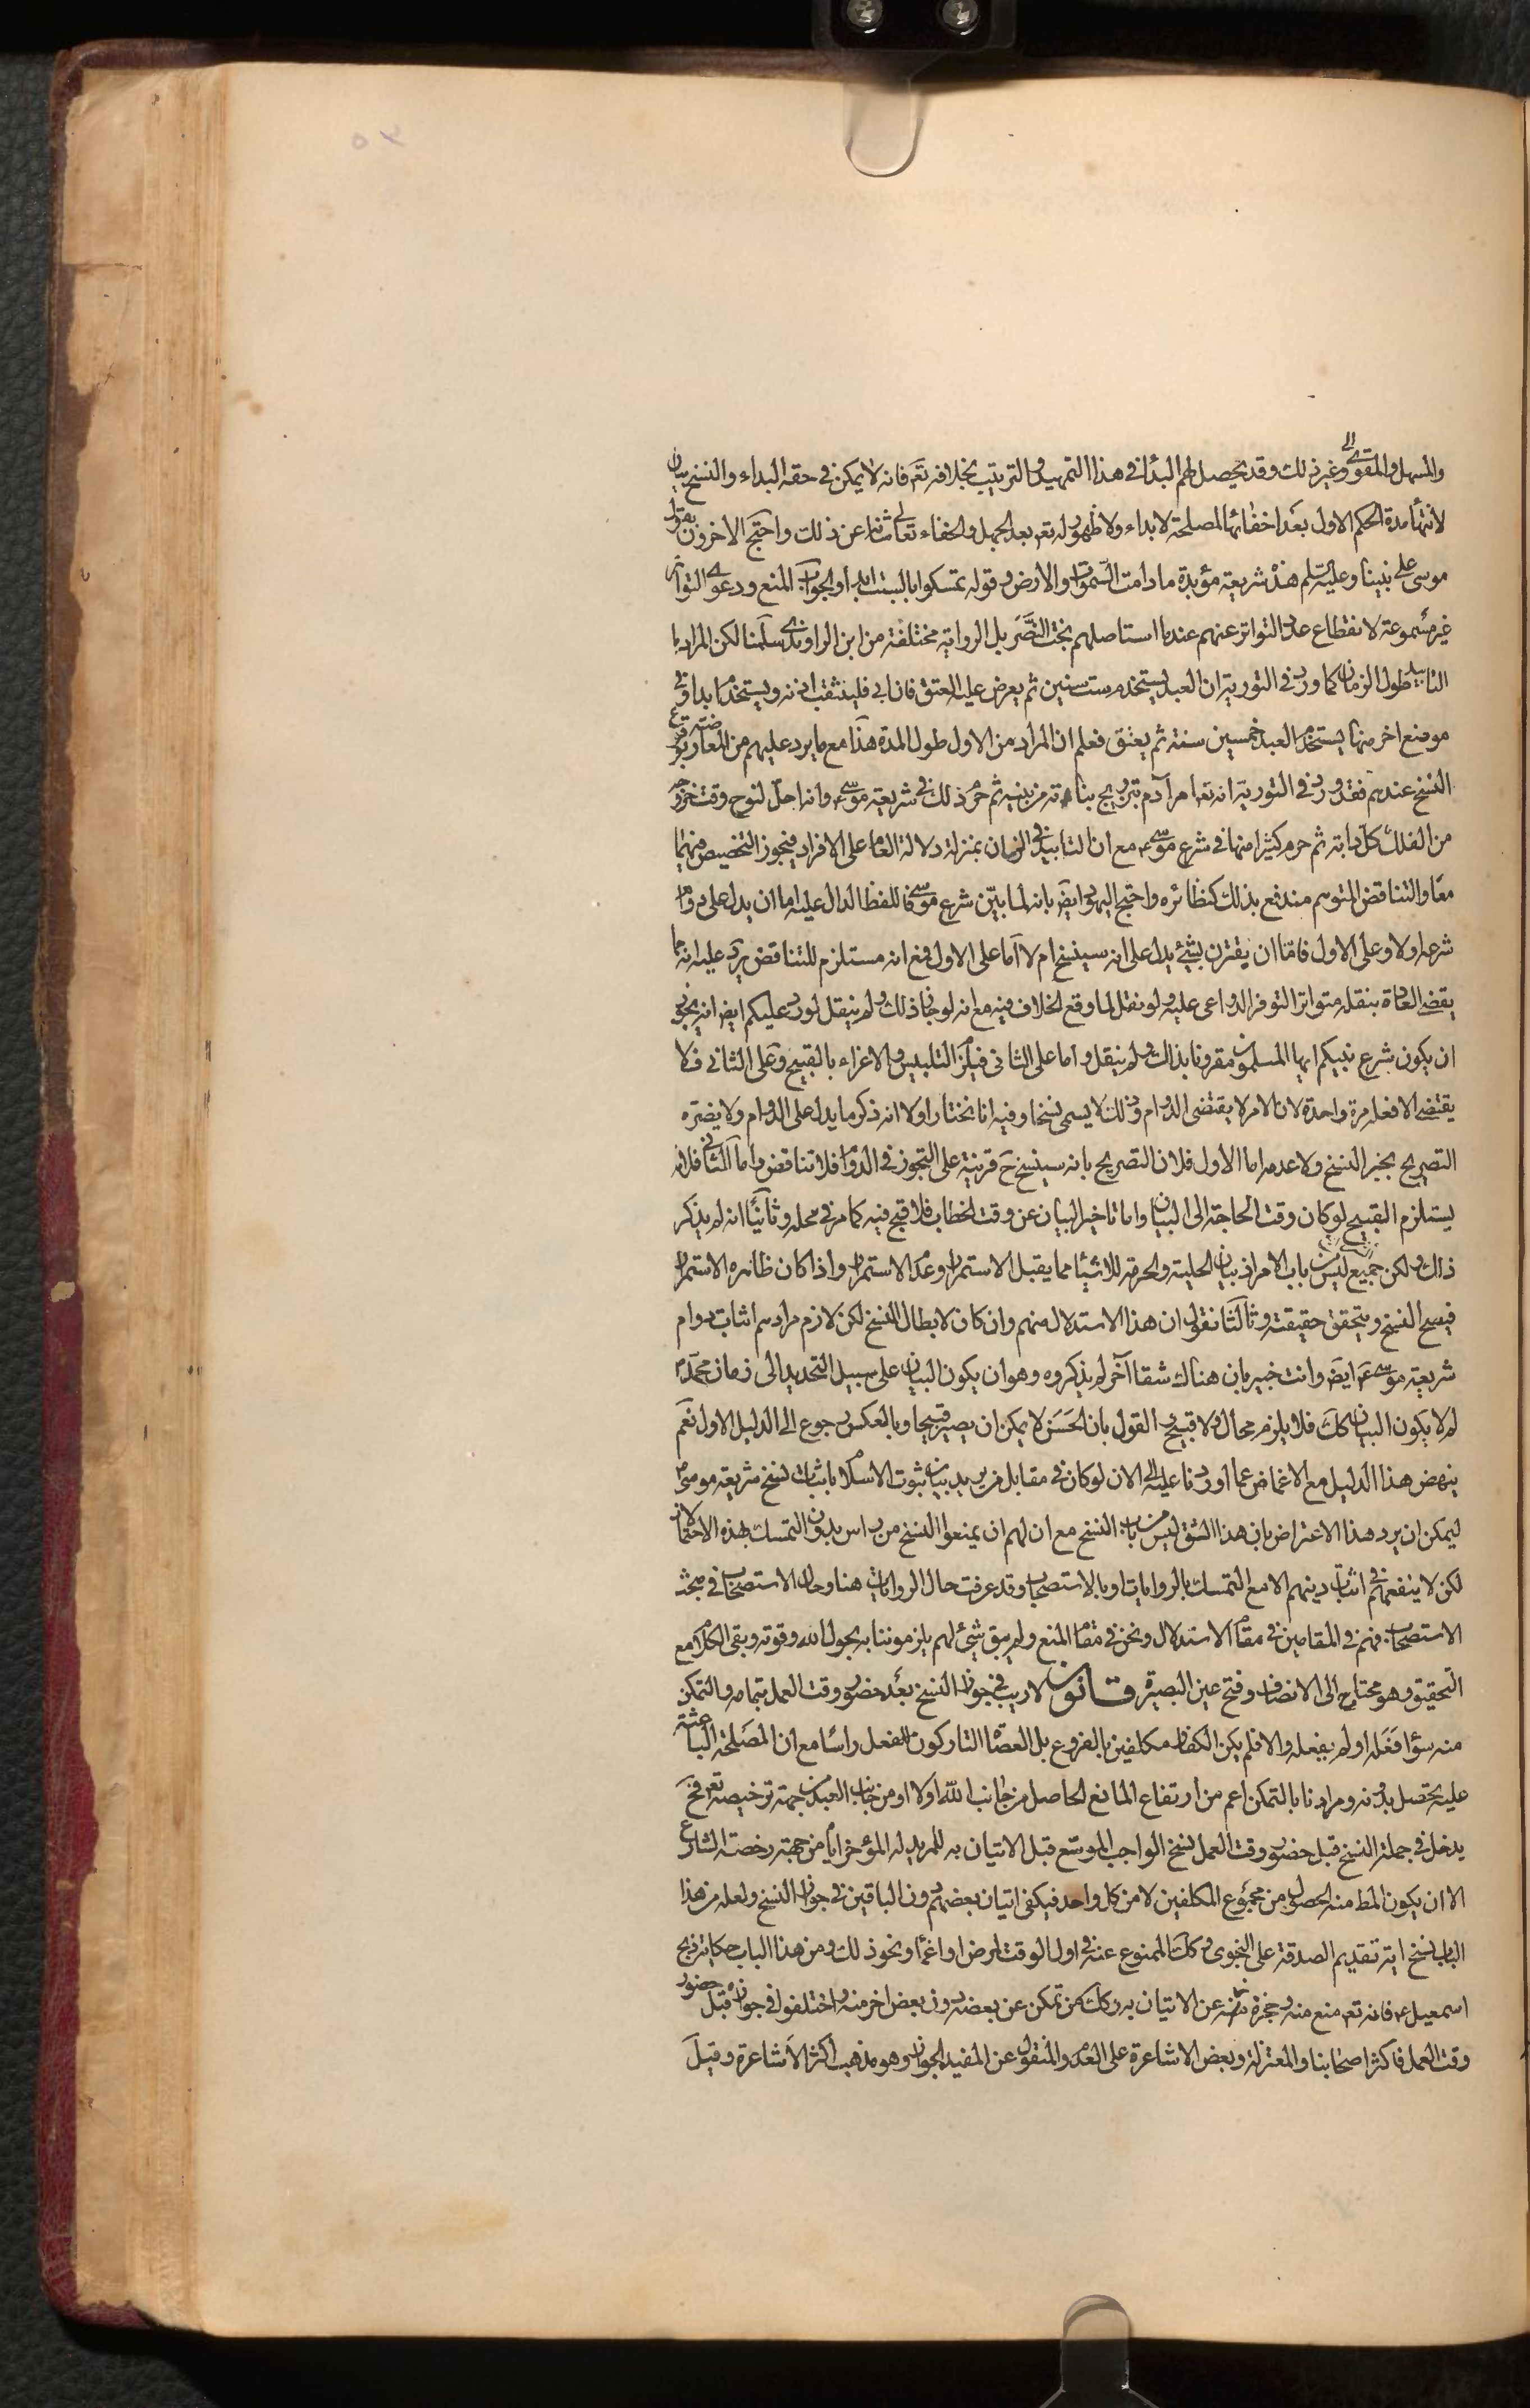 والمسهل والمقوي الى وغير ذلك وقد يحصل لهم البدأ فى هذا التمهيد والترتيب بخلافه تع فانه لا يمكن فى حقه البداء والنسخ بيان
لانتهاء مدة الحكم الاول بعد اخفائها لمصلحة لا بداء ولا ظهور له تع بعد الجهل والخفاء تعالى شانه عن ذلك واحتج الاخرون بقول
موسى على نبينا وعليه السلم هذه شريعة مؤبدة ما دامت السموات والارض وقوله تمسكوا بالسبت ابدا والجواب المنع ودعوى التواتر
غير مسموعة لانقطاع عدد التواتر عنهم عندما استاصلهم بخت النصر بل الرواية مختلقة من ابن الراوندى سلمنا لكن المراد با
التابيد طول الزمان كما ورد فى التورية ان العبد يستخدم ست سنين ثم يعرض عليه العتق فان ابى فليثقب اذنه ويستخدم ابدا وفى
موضع اخر منها يستخدم العبد خمسين سنة ثم يعتق فعلم ان المراد من الاول طول المدة هذا مع ما يرد عليهم من المعارضة بوقوع
النسخ عندهم فقد ورد فى التورية انه تع امر آدم بتزويج بناته من بنيه ثم حرم ذلك فى شريعة موسى ع وانه احل لنوح وقت خروجه
من الفلك كل دابة ثم حرم كثيرا منها فى شرع موسى ع مع ان التابيد فى الزمان بمنزلة دلالة العام على الافراد فيجوز التخصيص فيهما
معا والتناقض المتوهم مندفع بذلك كنظائره واحتج اليهود ايض بانه لما بين شرع موسى فاللفظ الدال عليه اما ان يدل على دوام
شرعه اولا وعلى الاول فاما ان يقترن بشئ يدل على انه سينسخ ام لا اما على الاول فمع انه مستلزم للتناقض يرد عليه انه مما
يقضى العادة بنقله متواترا لتوفر الدواعى عليه ولو نقل لما وقع الخلاف فيه مع انه لو جاز ذلك ولم ينقل لورد عليكم ايض انه يجوز
ان يكون شرع نبيكم ايها المسلمون مقرونا بذلك ولم ينقل واما على الثانى فيلزم التلبيس والاغراء بالقبيح وعلى الثانى فلا
يقتضى الا فعله مرة واحدة لان الامر لا يقتضى الدوام وذلك لا يسمى نسخا وفيه انا نختار اولا انه ذكر ما يدل على الدوام ولا يضره
التصريح بخبر النسخ ولا عدمه اما الاول فلان التصريح بانه سينسخ ح قرينة على التجوز فى الدوام فلا تناقض واما الثانى فلانه
يستلزم القبيح لو كان وقت الحاجة الى البيان واما تاخير البيان عن وقت الخطاب فلا قبح فيه كما مر فى محله وثانيا انه لم يذكر
ذلك ولكن جميع ليس من باب الامر اذ بيان الحلية والحرمة للاشياء مما يقبل الاستمرار وعدم الاستمرار واذا كان ظاهره الاستمرار
فيصح النسخ ويتحقق حقيقته وثالثا نقول ان هذا الاستدلال منهم وان كان لابطال النسخ لكن لازم مرادهم اثبات دوام
شريعة موسى ع ايض وانت خبير بان هناك شقا آخر لم يذكروه وهو ان يكون البيان على سبيل التحديد الى زمان محمد ص
لم لا يكون البيان كك فلا يلزم محال ولا قبيح والقول بان الحسن لا يمكن ان يصير قبيحا وبالعكس رجوع الى الدليل الاول نعم
ينهض هذا الدليل مع الاغماض عما اوردنا عليه الى الان لو كان فى مقابل من يريد بيان ثبوت الاسلام باثبات نسخ شريعة موسى ع
ليمكن ان يرد هذا الاعتراض بان هذا الشق ليس من باب النسخ مع ان لهم ان يمنعوا النسخ من راس بدون التمسك بهذه الاحتمالات
لكن لا ينفعهم فى اثبات دينهم الا مع التمسك بالروايات او بالاستصحاب وقد عرفت حال الروايات هنا وحال الاستصحاب فى مبحث
الاستصحاب فهم فى المقامين فى مقام الاستدلال ونحن فى مقام المنع ولم يبق شئ لهم يلزموننا به بحول الله وقوته وبقى الكلام مع
التحقيق وهو محتاج الى الانصاف وفتح عين البصيرة قانون لا ريب فى جواز النسخ بعد حضور وقت العمل بتمامه والتمكن
منه سواء فعله او لم يفعله والا فلم يكن الكفار مكلفين بالفروع بل العصاة التاركون للفعل راسا مع ان المصلحة الباعثة
عليه تحصل بدونه ومرادنا بالتمكن اعم من ارتفاع المانع الحاصل من جانب الله اولا او من جانب العبد من جهة ترخيصه تع فح
يدخل فى جملة النسخ قبل حضور وقت العمل نسخ الواجب الموسع قبل الاتيان به للمريد له المؤخر اياه من جهة رخصة الشارع
الا ان يكون المط منه الحصول من مجموع المكلفين لا من كل واحد فيكفى اتيان بعضهم دون الباقين فى جواز النسخ ولعله من هذا
الباب نسخ اية تقديم الصدقة على النجوى وكك الممنوع عنه فى اول الوقت لمرض او اغماء ونحو ذلك ومن هذا الباب حكاية ذبح
اسمعيل ع فانه تع منع منه وحجزه عنه عن الاتيان به وكك من تمكن عن بعضه دون بعض اخر منه واختلفوا فى جوازه قبل حضور
وقت العمل فاكثر اصحابنا والمعتزلة وبعض الاشاعرة على العدم والمنقول عن المفيد الجواز وهو مذهب اكثر الاشاعرة وقيل